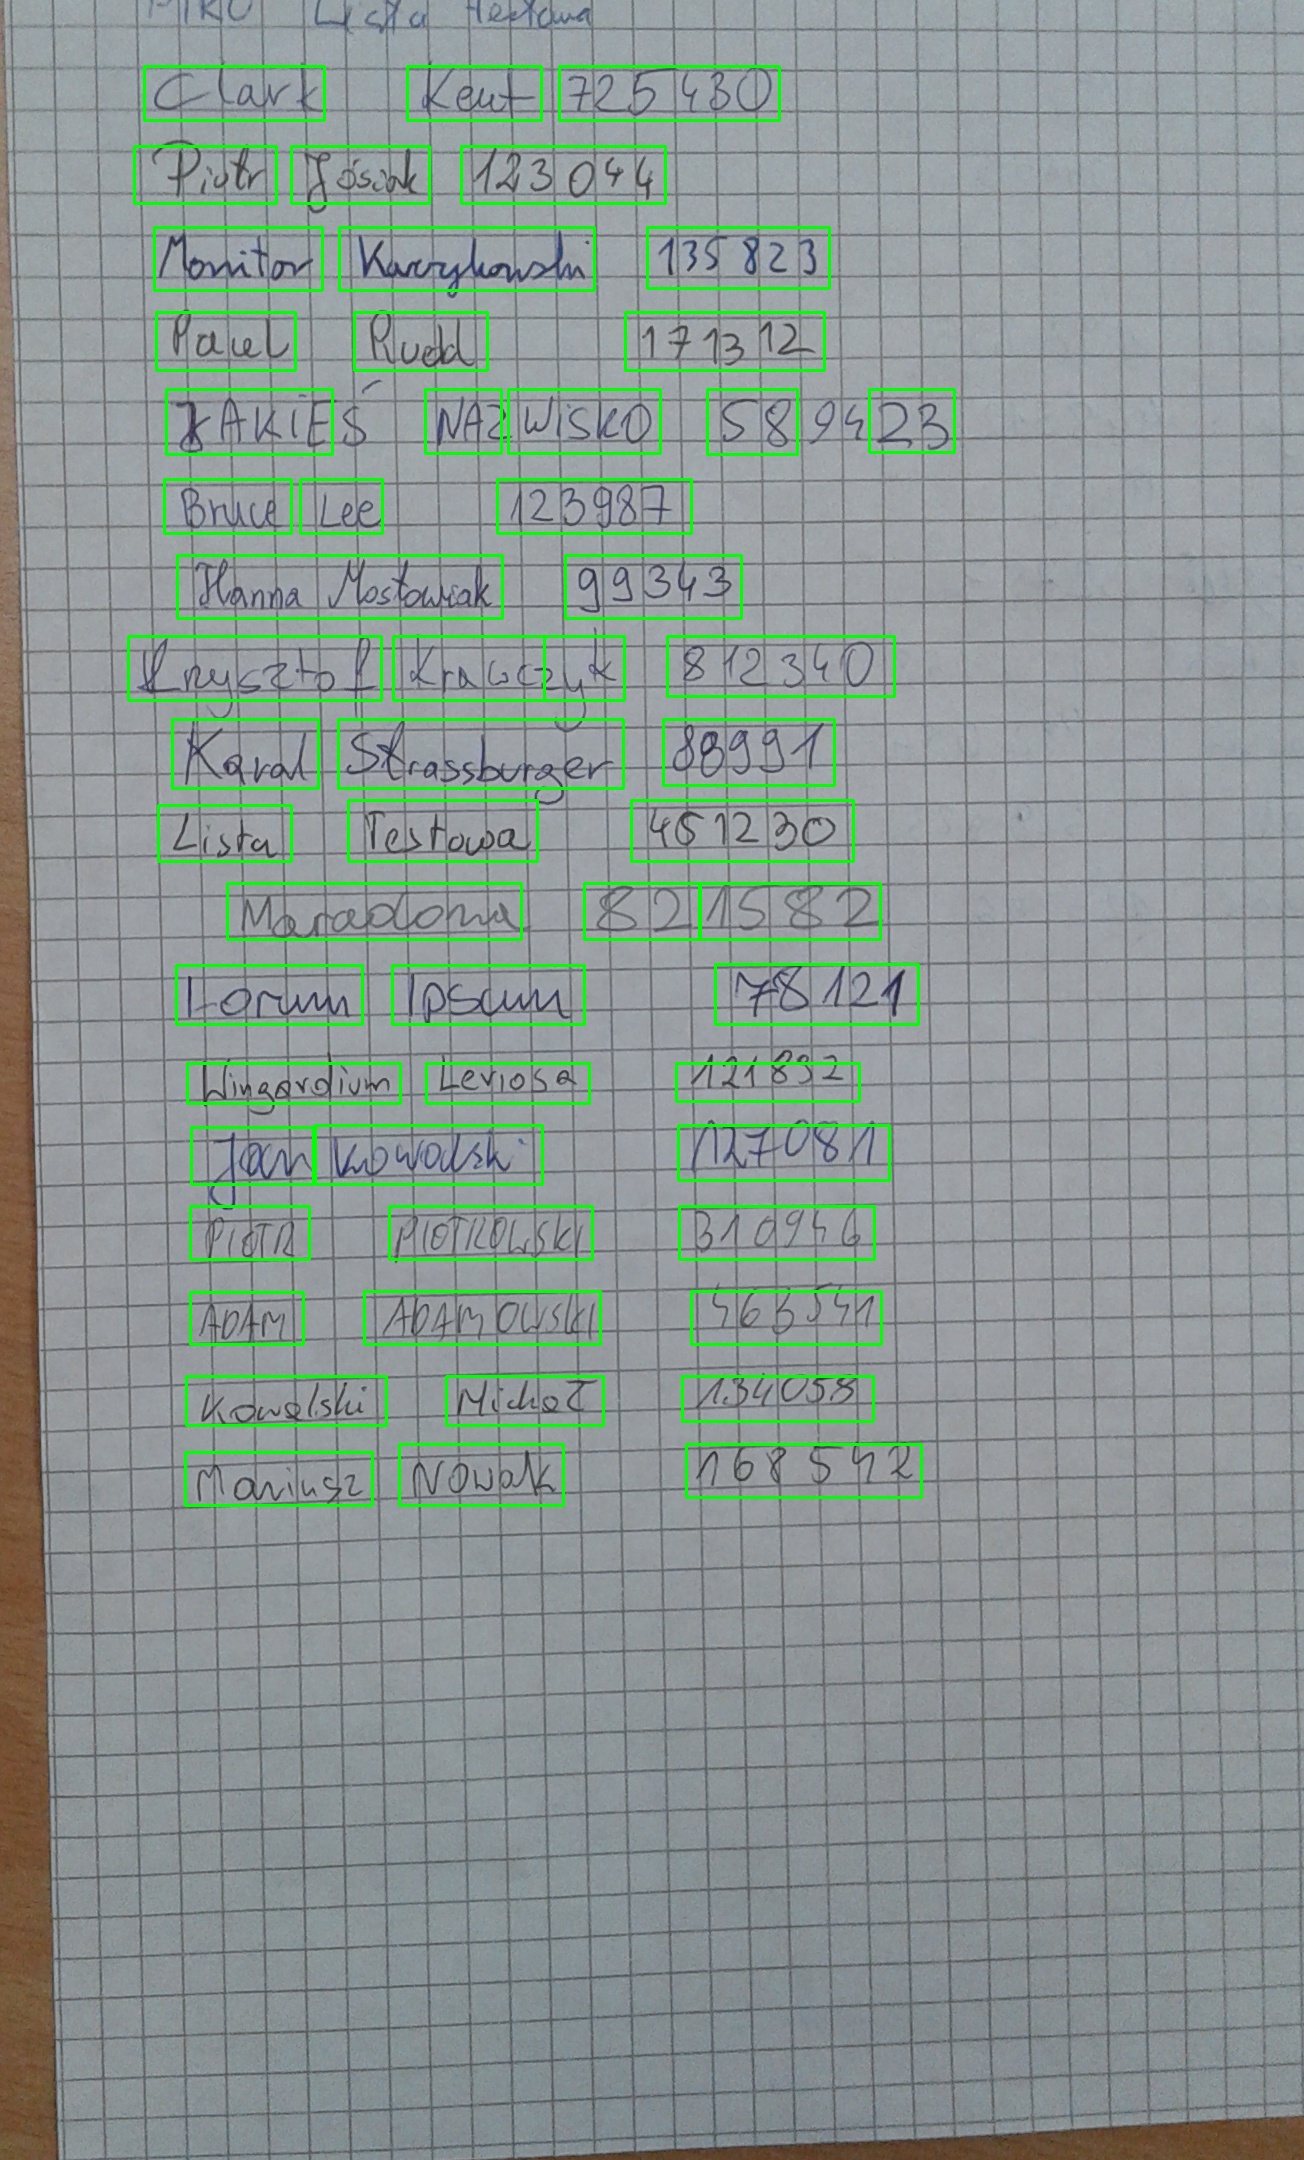 Lista testowa
Clark Kent 725430
Piotr Jósiak 123044
Monitor 135823
Paul Rudd 171312
JAKIEŚ NAZWISKO 589423
Bruce Lee 123987
Hanna Mostowiak 99343
Krzysztof Krawczyk 812340
Karol Strassburger 88991
Lista Testowa 451230
Maradona 821582
Lorum Ipsum 78121
Wingardium Leviosa 121892
Jan Kowalski 127081
PIOTR PIOTROWSKI 310946
ADAM ADAMOWSKI 463541
Kowalski Michał 134058
Mariusz Nowak 168542